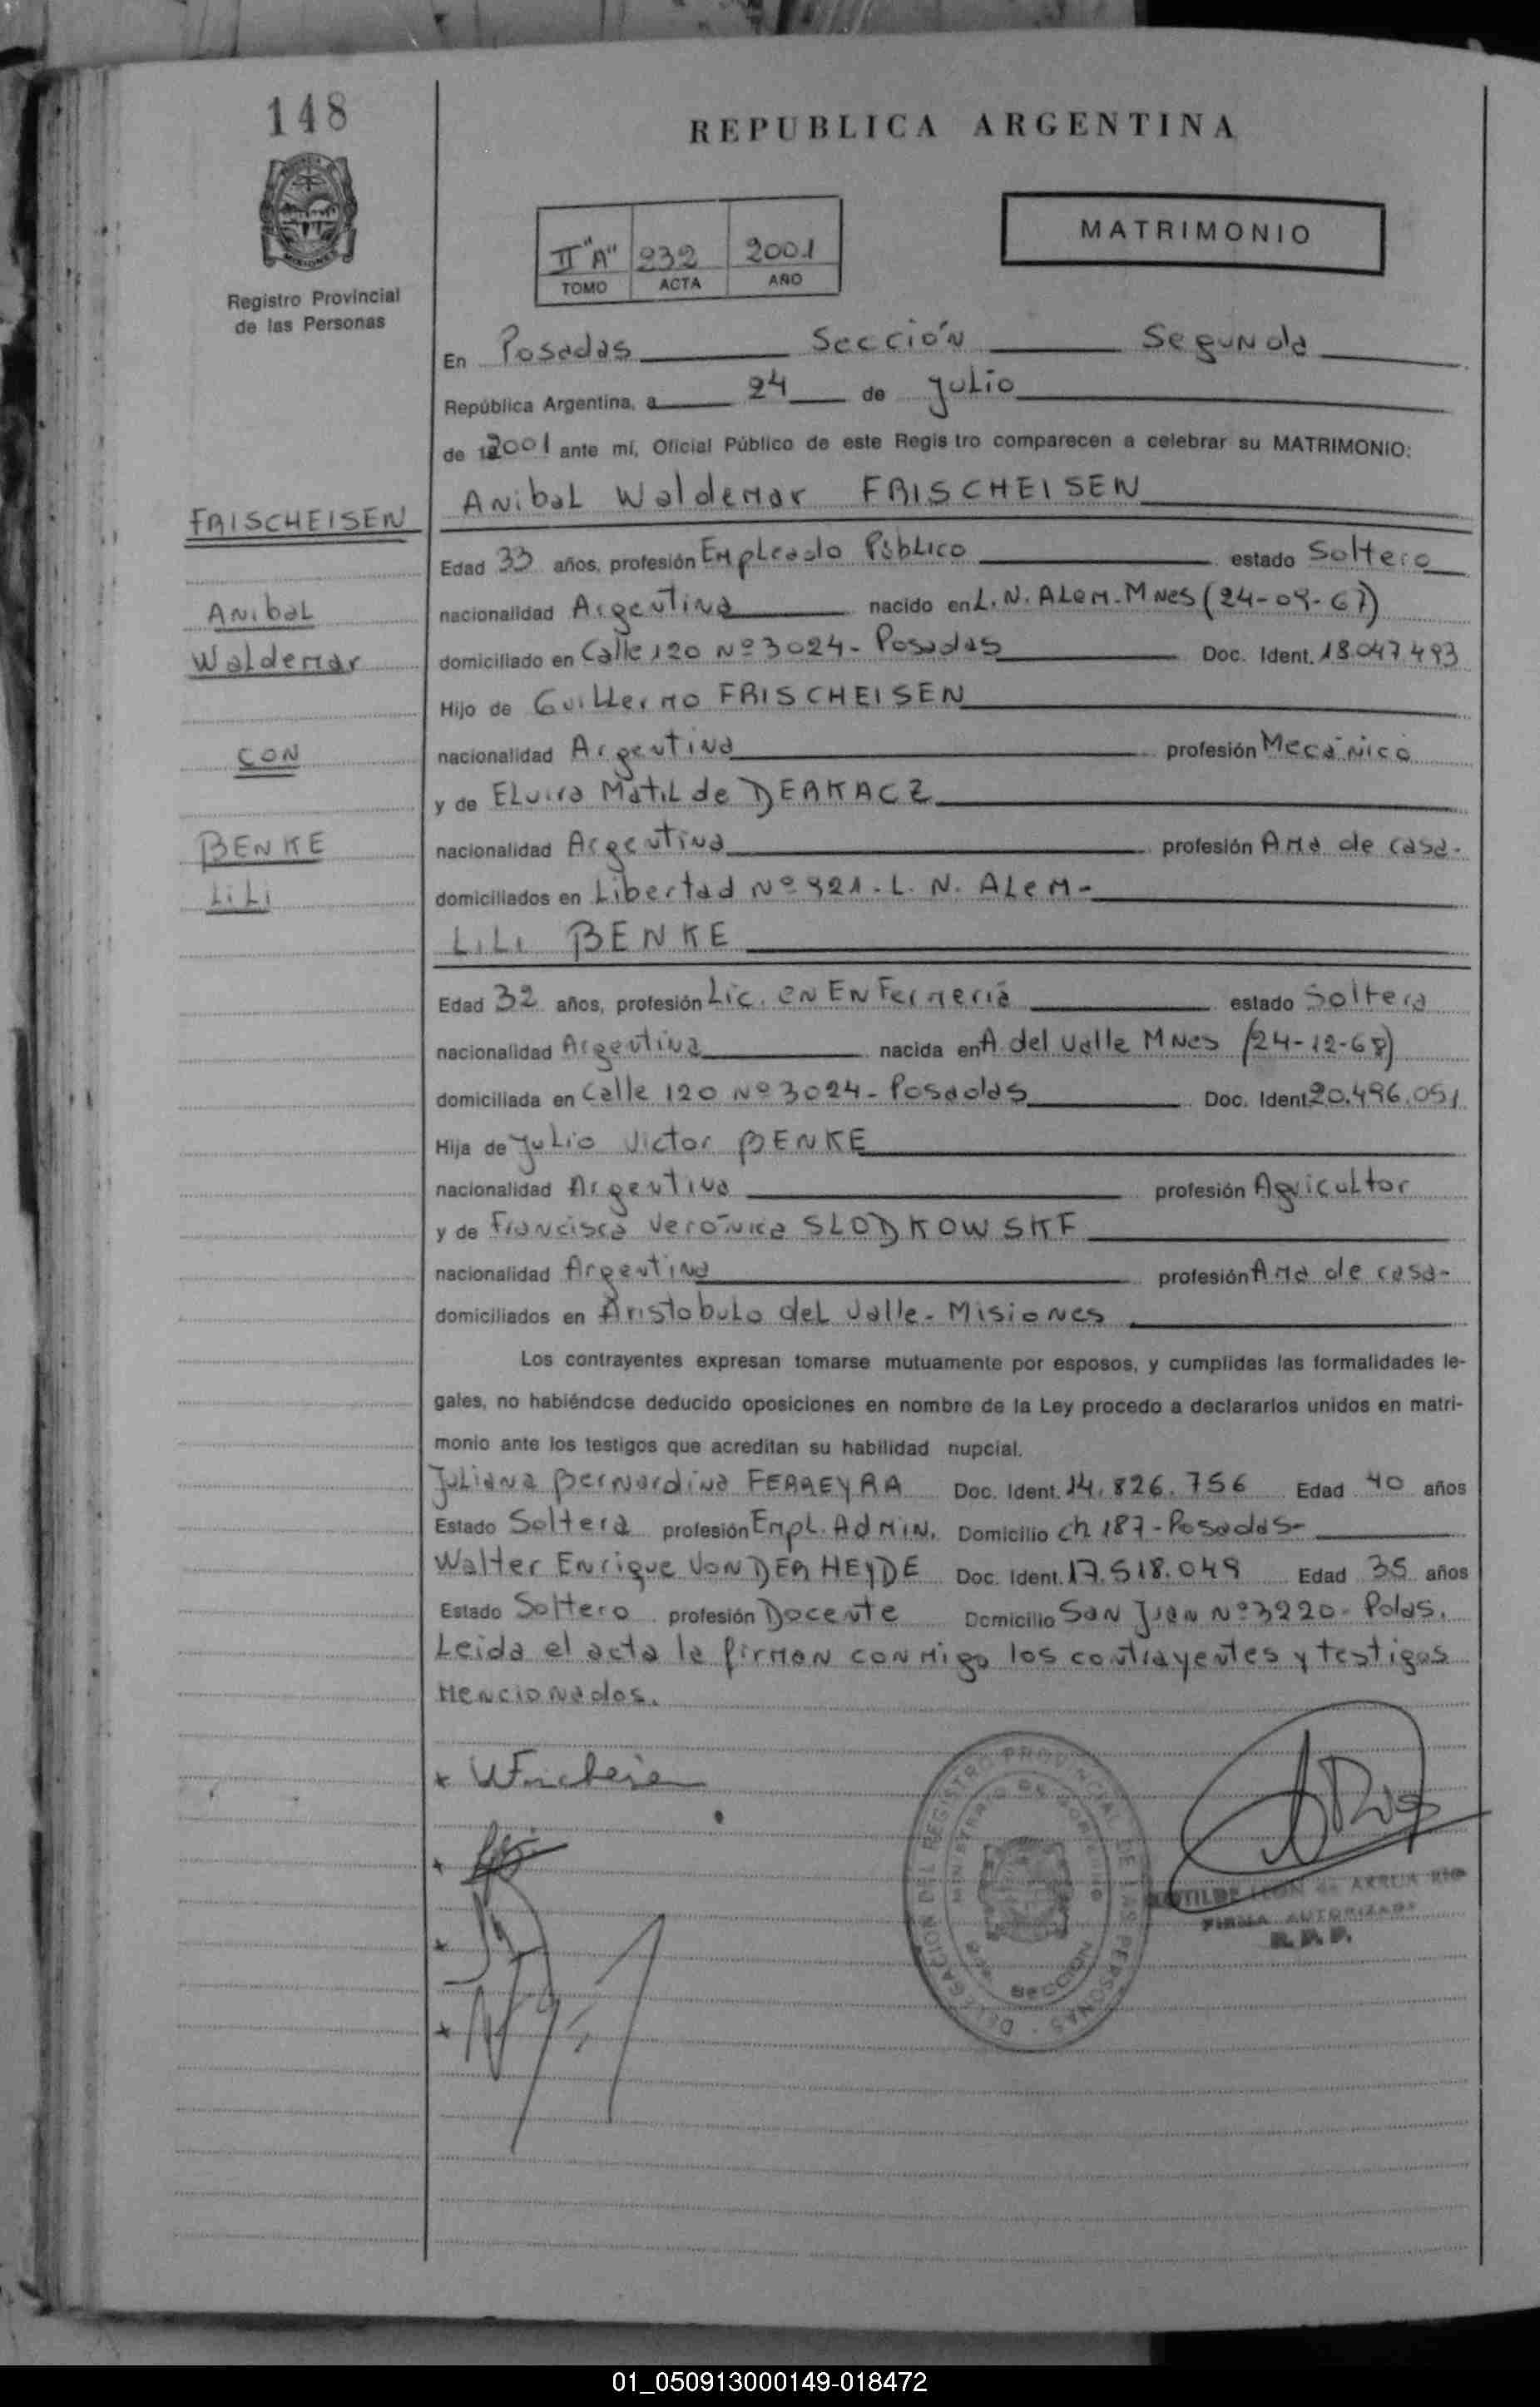 148
REPUBLICA ARGENTINA
MATRIMONIO
II "A" 232 2001
TOMO ACTA AÑO
Registro Provincial
de las Personas
En Posadas Sección Segunda
República Argentina, a 24 de julio
de 2001 ante mí, Oficial Público de este Registro comparecen a celebrar su MATRIMONIO:
Anibal Waldemar FRISCHEISEN
FRISCHEISEN
Edad 33 años, profesión Empleado Público estado Soltero
Anibal
nacionalidad Argentina nacido en L. N. ALem. Mnes (24-09-67)
Waldemar
domiciliado en Calle 120 Nº 3024 - Posadas Doc. Ident. 18.047.493
Hijo de Guillermo FRISCHEISEN
CON
nacionalidad Argentina profesión Mecánico
y de Elvira Matilde DERKACZ
BENKE
nacionalidad Argentina profesión Ama de casa.
LiLi
domiciliados en Libertad Nº 921 - L. N. ALem -
LiLi BENKE
Edad 32 años, profesión Lic. en Enfermería estado Soltera
nacionalidad Argentina nacida en A. del Valle Mnes (24-12-68)
domiciliada en Calle 120 Nº 3024 - Posadas Doc. Ident. 20.496.051
Hija de Julio Victor BENKE
nacionalidad Argentina profesión Agricultor
y de Francisca Verónica SLODKOWSKF
nacionalidad Argentina profesión Ama de casa-
domiciliados en Aristobulo del Valle - Misiones
Los contrayentes expresan tomarse mutuamente por esposos, y cumplidas las formalidades le-
gales, no habiéndose deducido oposiciones en nombre de la Ley procedo a declararlos unidos en matri-
monio ante los testigos que acreditan su habilidad nupcial.
Juliana Bernardina FERREYRA Doc. Ident. 14.826.756 Edad 40 años
Estado Soltera profesión Empl. Admin. Domicilio Ch 187 - Posadas-
Walter Enrique VON DER HEYDE Doc. Ident. 17.518.049 Edad 35 años
Estado Soltero profesión Docente Domicilio San Juan Nº 3220 - Pdas.
Leida el acta la firman conmigo los contrayentes y testigos
mencionados.
DELEGACION DEL REGISTRO PROVINCIAL DE LAS PERSONAS
MINISTERIO DE GOBIERNO
SECCION
MATILDE LEON de ARRUA
FIRMA AUTORIZADA
R. P. P.
01_050913000149-018472